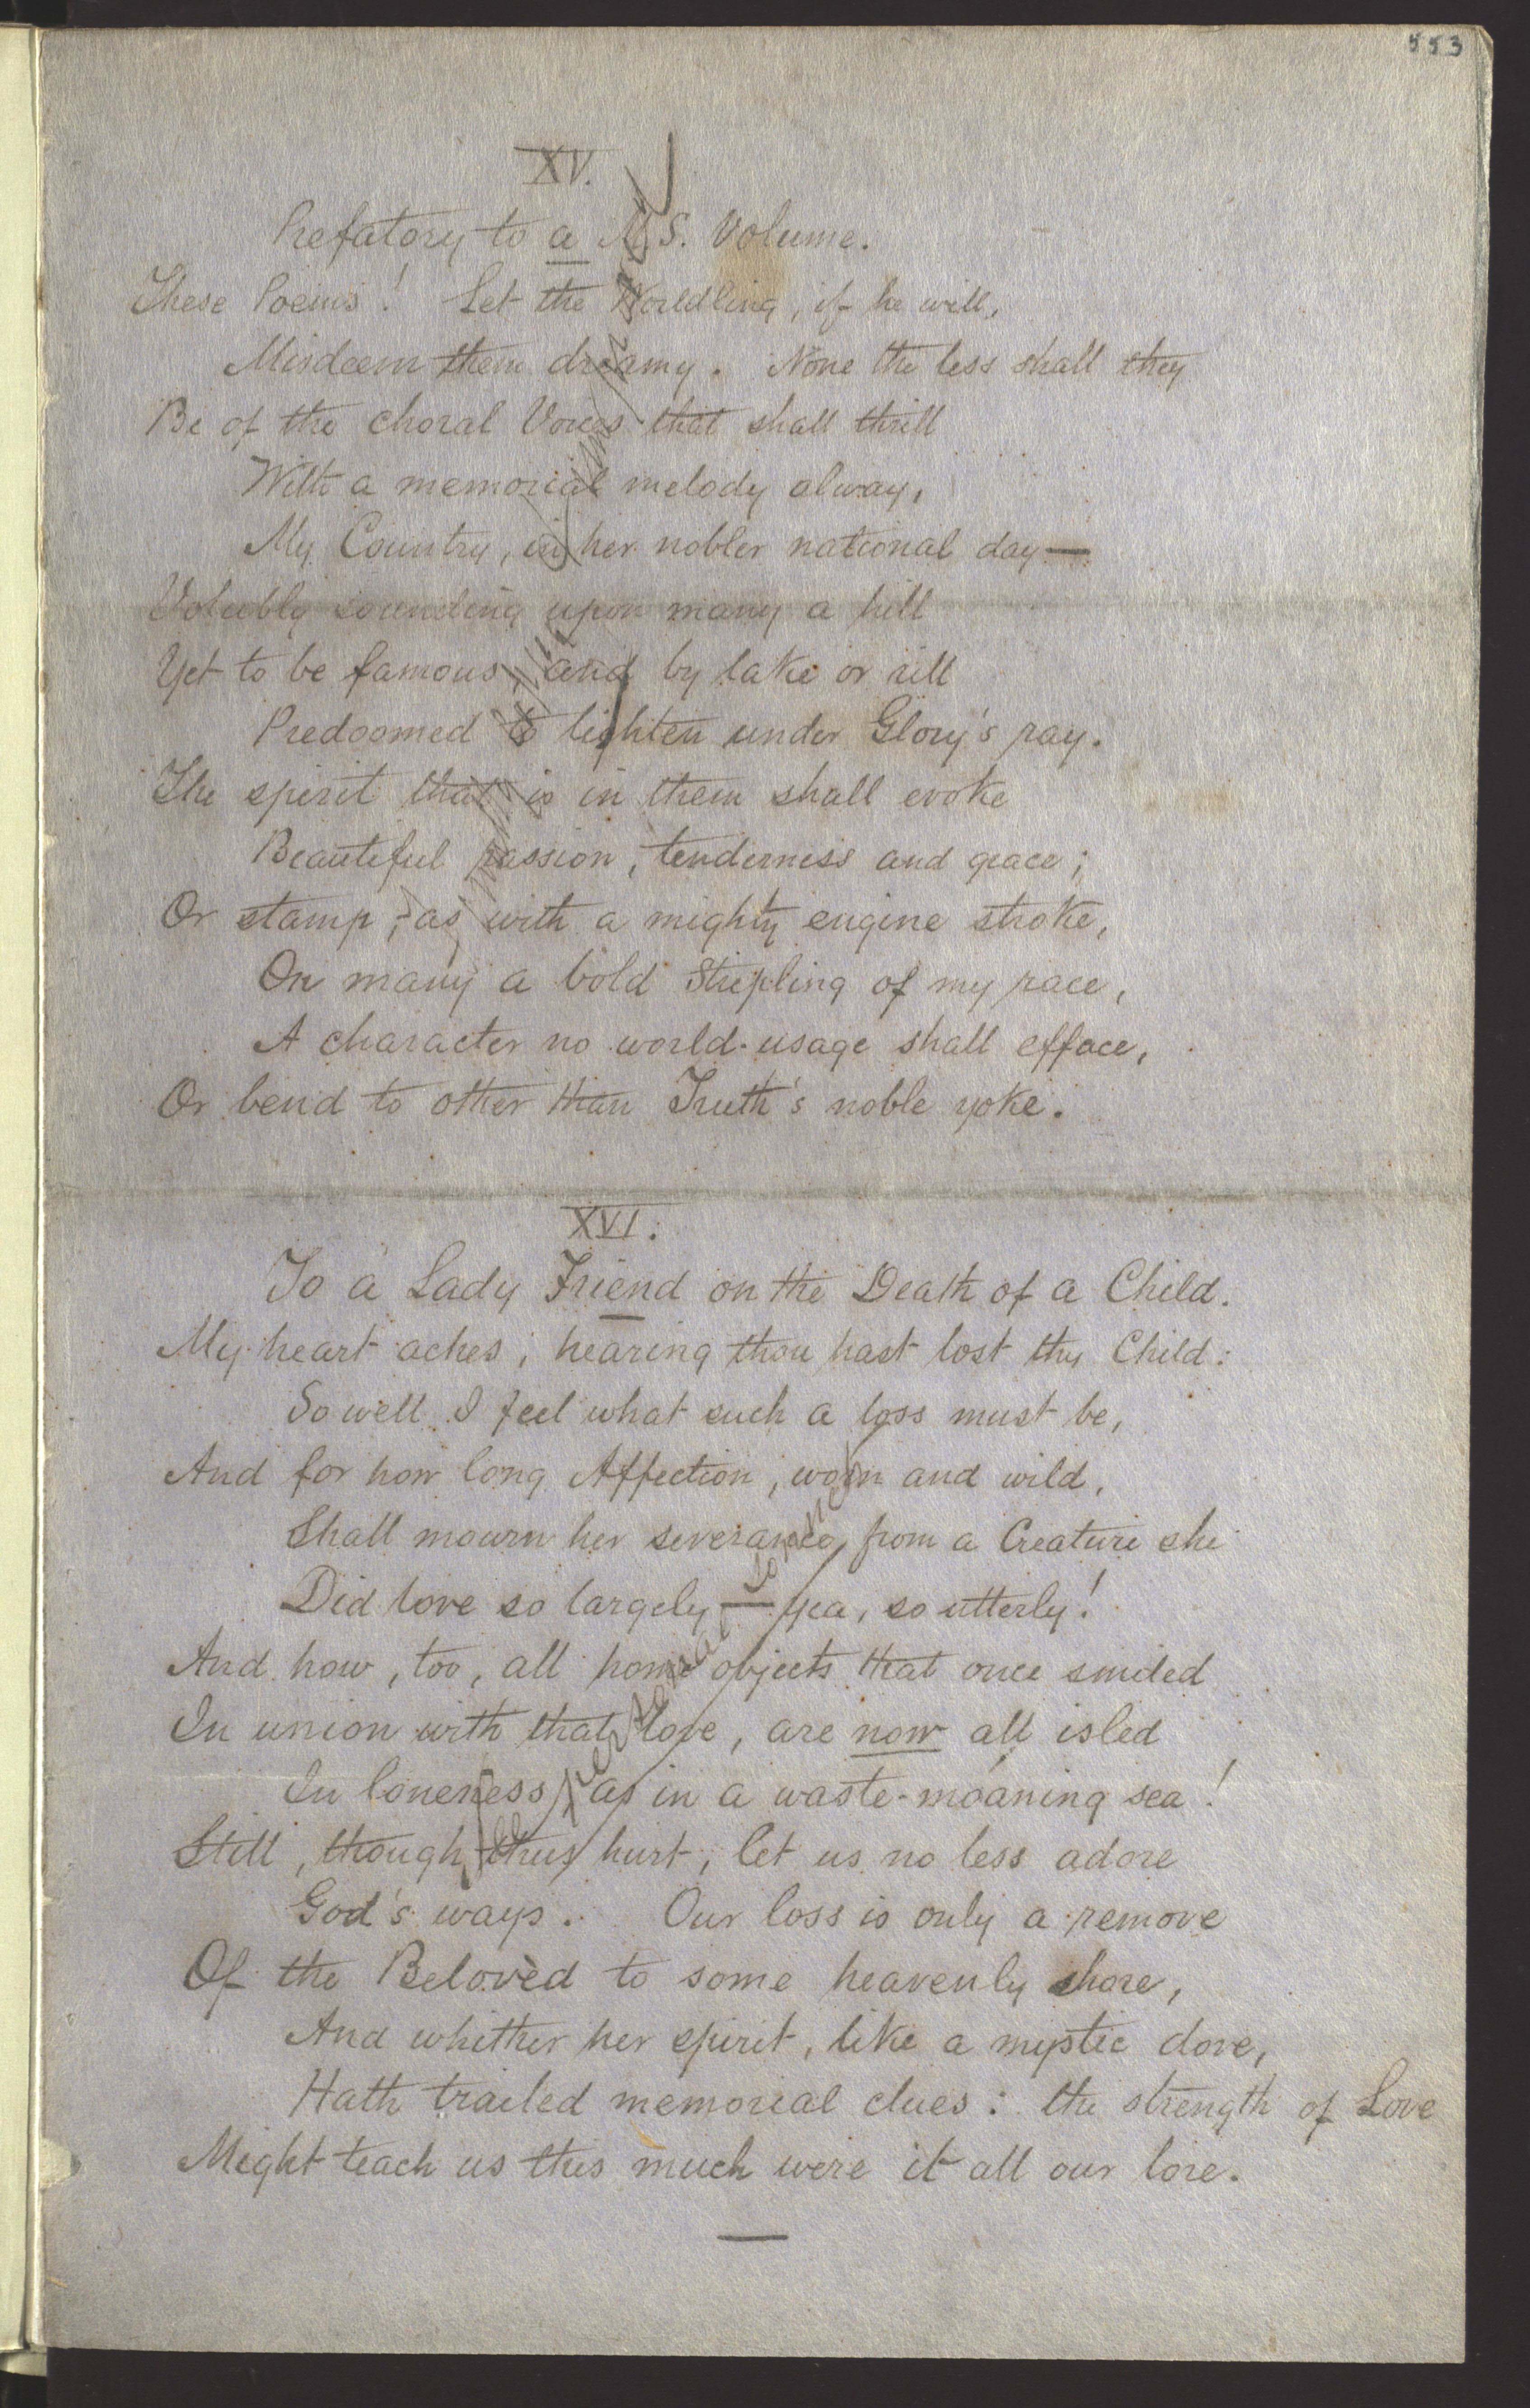 553
XV.
Prefatory to a M.S. Volume.
These Poems! Let the Worldling, if he will,
Misdeem them dreamy. None the less shall they
Be of the choral Voices that shall thrill
With a memorial melody alway,
My Country, in her nobler national day—
Volubly sounding upon many a hill
Yet to be famous, and by lake or rill
Predoomed to lighten under Glory's ray.
The spirit that is in them shall evoke
Beautiful passion, tenderness and grace;
Or stamp, as with a mighty engine stroke,
On many a bold Stripling of my race,
A character no world-usage shall efface,
Or bend to other than Truth's noble yoke.
XVI.
To a Lady Friend on the Death of a Child.
My heart aches, hearing thou hast lost thy Child:
So well I feel what such a loss must be,
And for how long Affection, worn and wild,
Shall mourn her severance from a Creature she
Did love so largely—yea, so utterly!
And how, too, all home objects that once smiled
In union with that love, are now all isled
In loneness, as in a waste-moaning sea!
Still, though thus hurt, let us no less adore
God's ways. Our loss is only a remove
Of the Belovèd to some heavenly shore,
And whither her spirit, like a mystic dove,
Hath trailed memorial clues: the strength of Love
Might teach us this much were it all our lore.